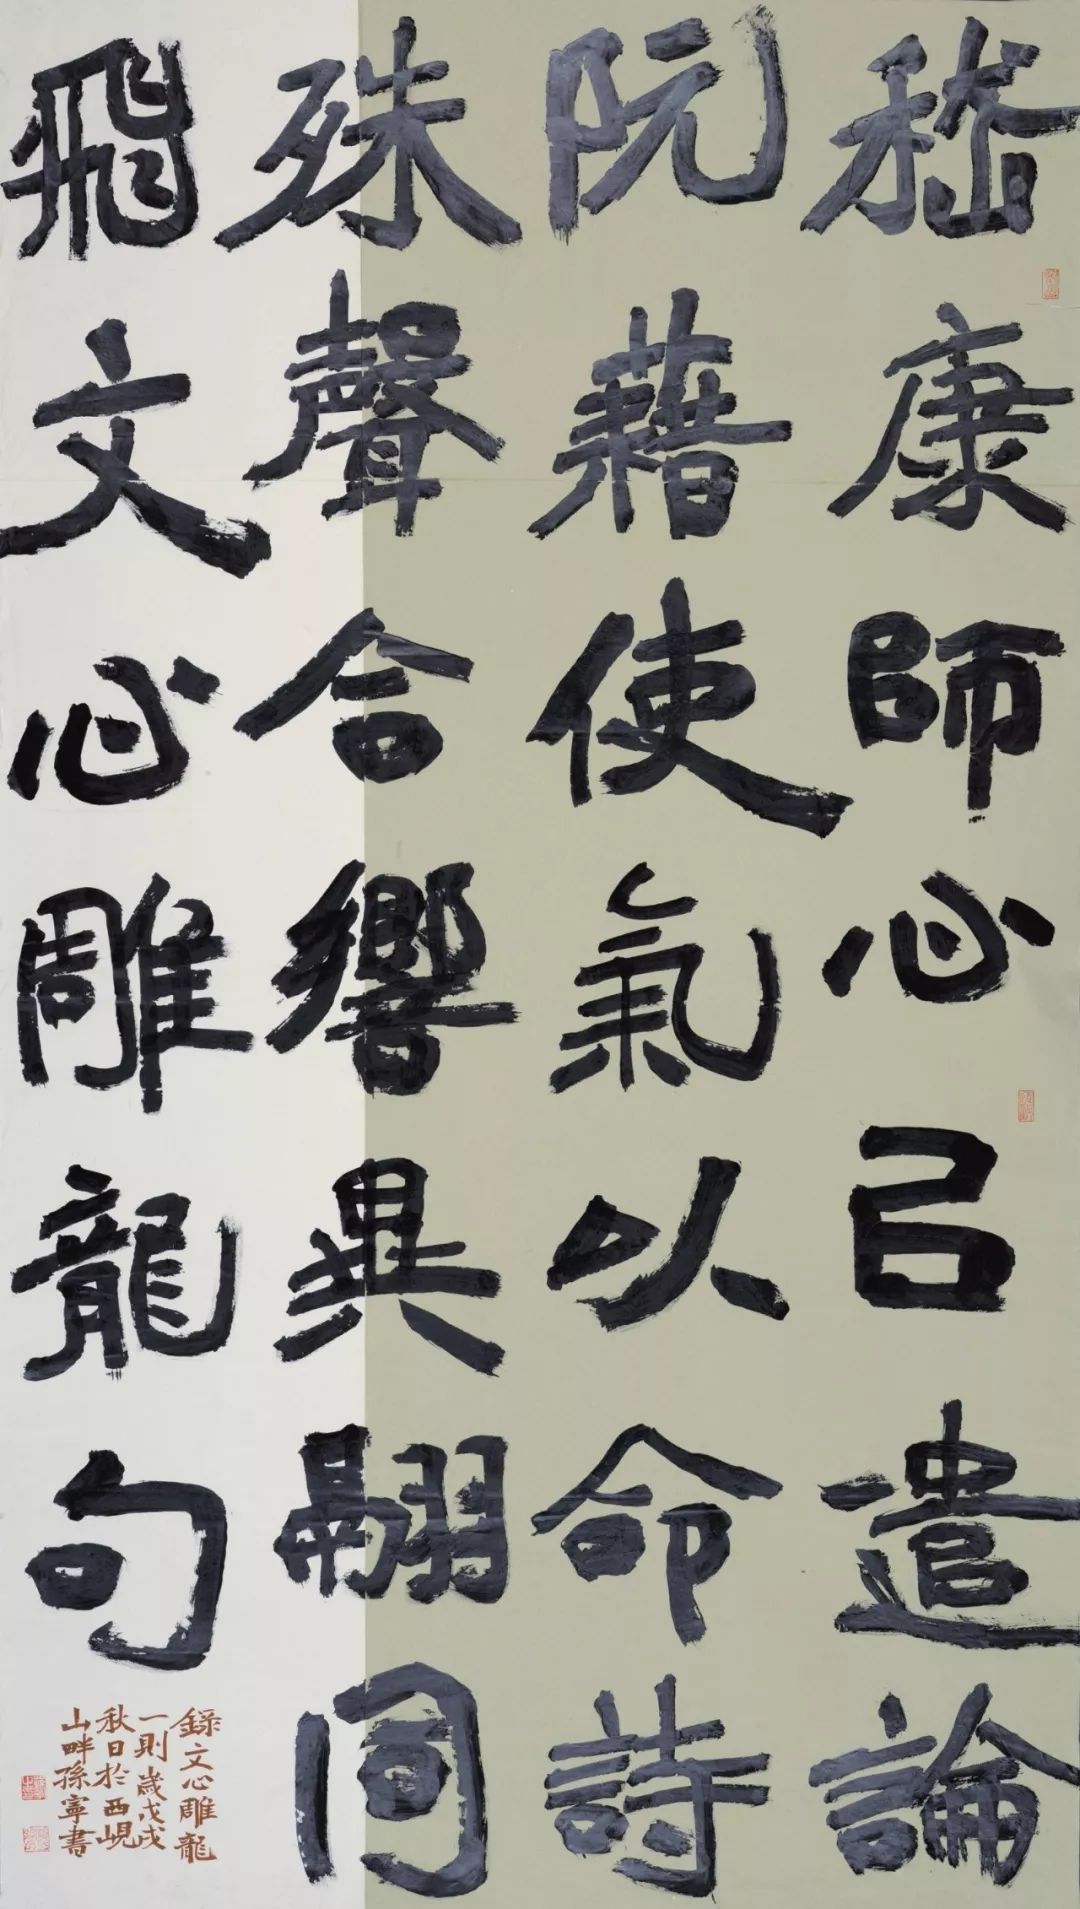 嵇康師心㠯遣論
阮藉使氣以命詩
殊聲合響異翮同
飛文心雕龍句
錄文心雕龍
一則歲戊戌
秋日於西峴
山畔孫寧書